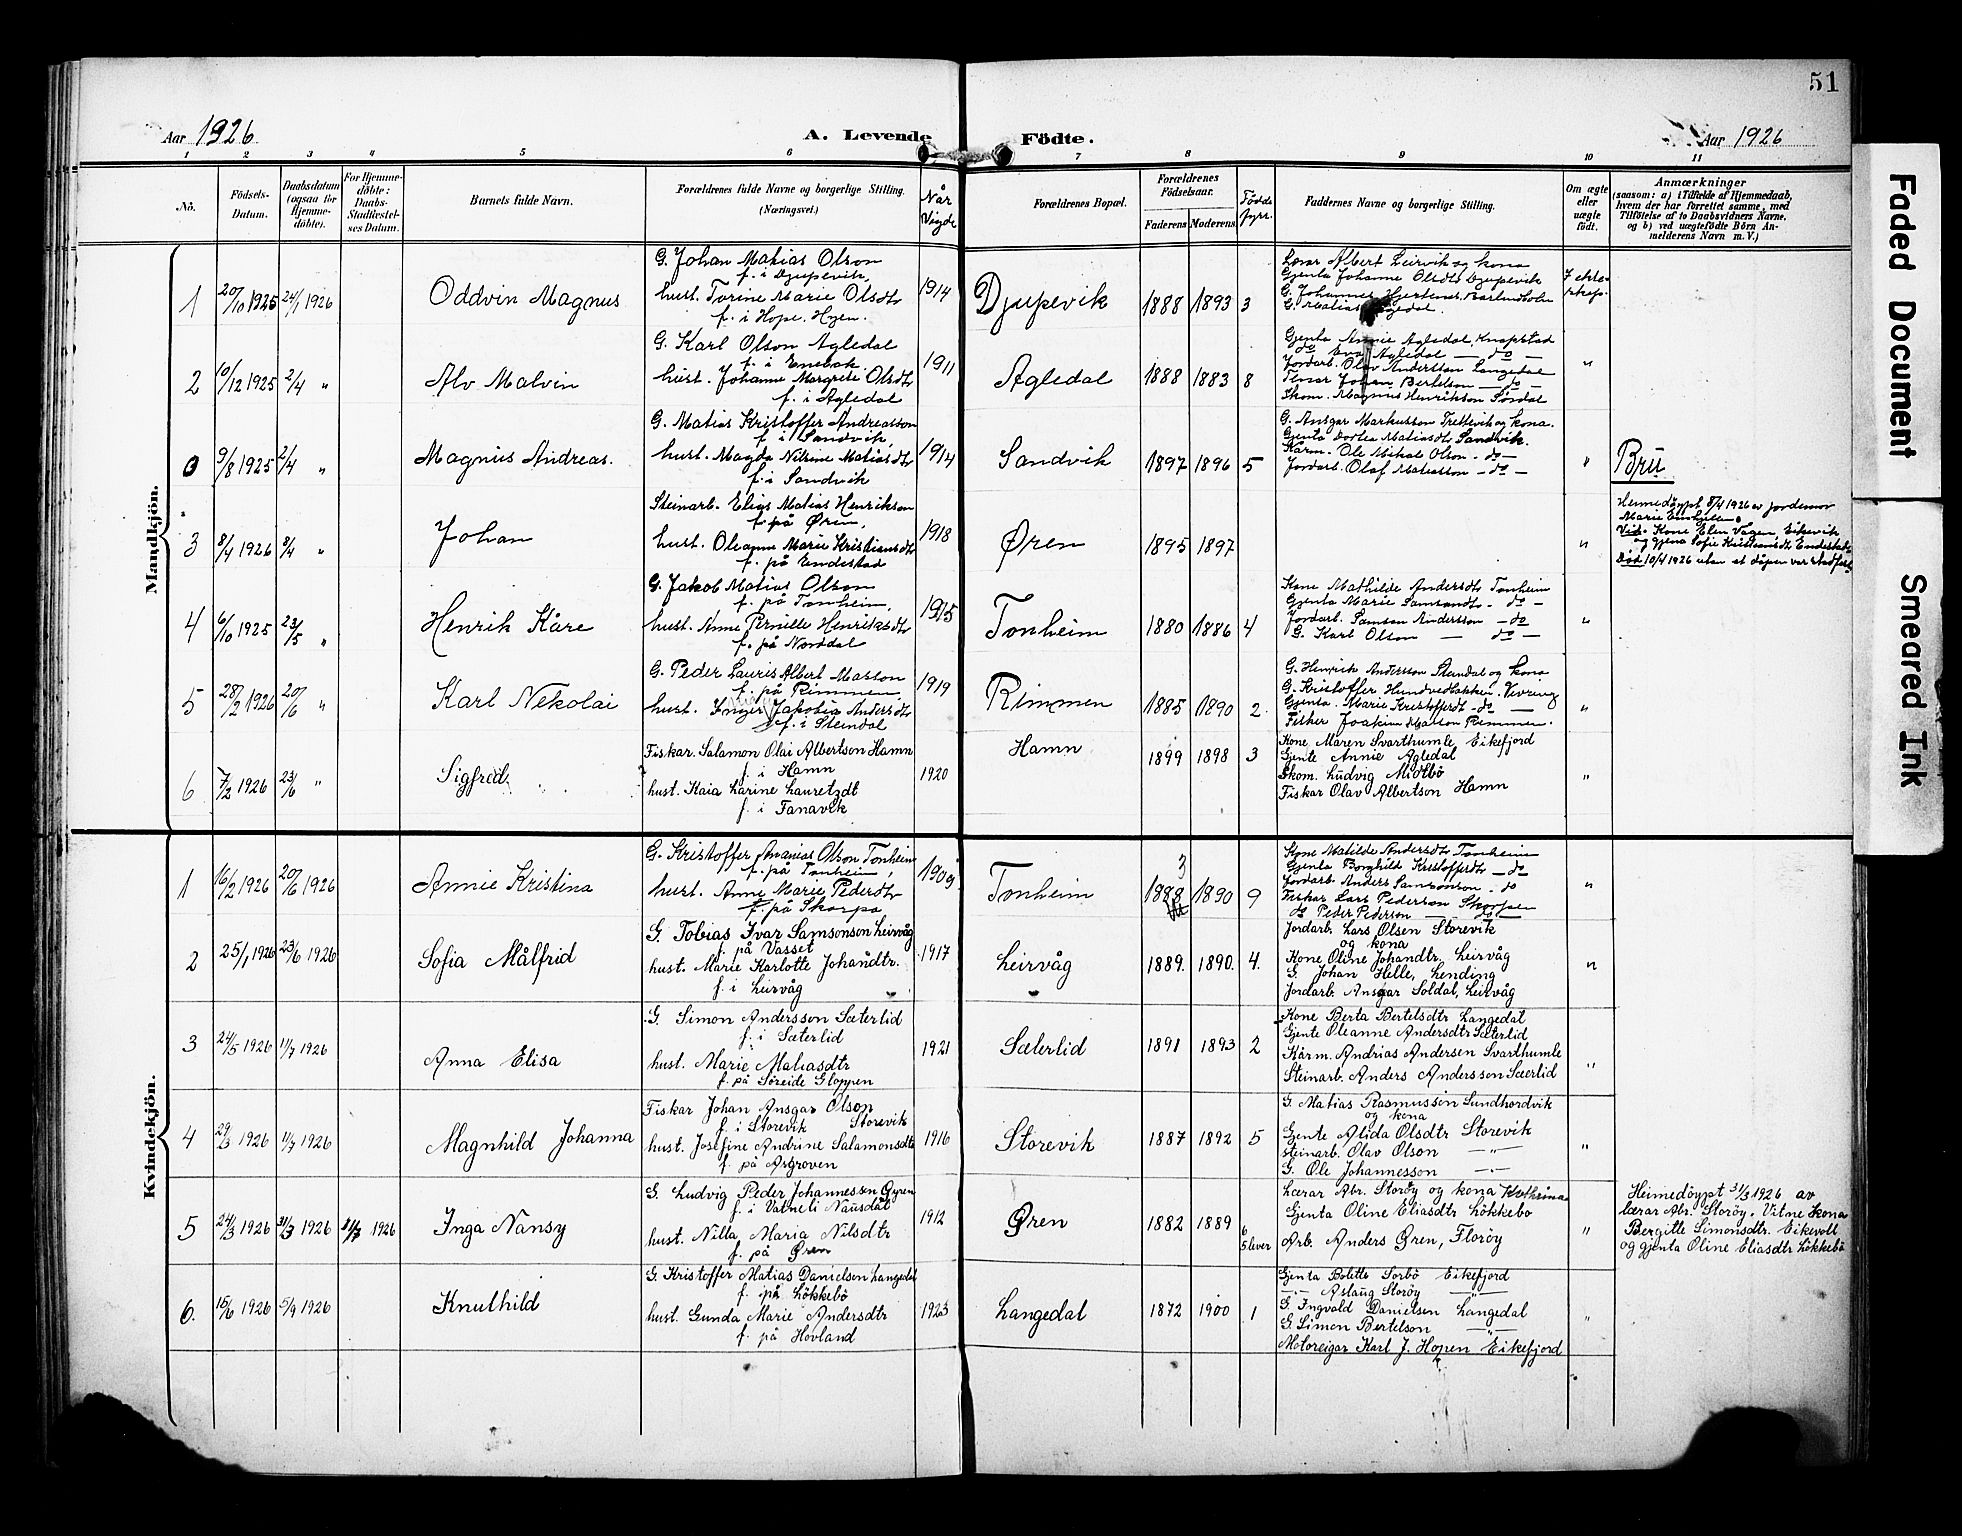 51
Aar 1926
A. Levende Födte.
Aar 1926
1 2 3 4 5 6 7 8 9 10 11
Nö.
Födsels-Datum.
Daabsdatum (ogsaa for Hjemmedöbte).
For Hjemmedöbte: Daabs-Stadfæstelses Datum.
Barnets fulde Navn.
Forældrenes fulde Navne og borgerlige Stilling. (Næringsvei.)
Når Vigde
Forældrenes Bopæl.
Forældrenes Födselsaar.
Faderens Moderens
Födde fyrr.
Faddernes Navne og borgerlige Stilling.
Om ægte eller uægte födt.
Anmærkninger
(saasom: a) i Tilfælde af Hjemmedaab, hvem der har forrettet samme, med Tilföielse af to Daabsvidners Navne. og b) ved uægtefödte Börn Anmelderens Navn m. V.)
Mandkjön.
1 20/10 1925 24/1 1926 Oddvin Magnus
G. Johan Matias Olson
f. i Djupevik,
hust. Torine Marie Olsdtr
f. i Hope. Hyen.
1914 Djupevik 1888 1893 3
Lærar Albert Leirvik og kona
Gjenta Johanne Olsdtr Djupevik
G. Johannes Hjertenes,
G. Matias
2 10/12 1925 2/4 " Alv Malvin
G. Karl Olson Agledal
f. i Emebak
hust. Johanne Margrete Olsdtr
f. i Agledal
1911 Agledal 1888 1883 8 "
Gjenta Annie Agledal Knapstad
do Eva Agledal — do —
Jordarb. Olav Andersson Langedal
Johan Bertelson — do —
Skom. Magnus Henrikson Sördal
0 9/8 1925 2/4 " Magnus Andreas.
G. Matias Kristoffer Andreasson
f. i Sandvik,
hust. Magda Nilsine Matiasdtr
f. i Sandvik
1914 Sandvik 1897 1896 5 " Bru
G. Ansgar Markusson Tretlevik og kona.
Gjenta Dortea Matiasdtr Sandvik.
Kårm. Ole Mikal Olson - do -
Jordarb. Olaf Matiasson - do -
3 8/4 1926 8/4 " Johan
Steinarb. Elias Matias Henrikson
f. på Øren,
hust. Oleanne Marie Kristiansdtr
f. på Endestad
1918 Øren 1895 1897 "
Heimedöypt 8/4 1926 av jordemor
Marie
Vid. Kone Elen Vågen, Eikevik
og gjenta Sofie Kristiansdtr Endestad
Död 10/4 1926 utan at dåpen var stadfest
4 6/10 1925 23/5 " Henrik Kåre
G. Jakob Matias Olson
f. på Tonheim,
hust. Anne Pernille Henriksdtr
f. på Norddal
1915 Tonheim 1880 1886 4 "
Kone Mathilde Andersdtr Tonheim
Gjenta Marie Samsondtr - do -
Jordarb. Samson Andersson - do
G. Karl Olson — do —
5 28/2 1926 20/6 " Karl Nekolai
G. Peder Lauris Albert Masson
f. på Rimmen
hust. Inger Jakobia Andersdtr
f. i Steindal
1919 Rimmen 1885 1890 2 "
G. Henrik Andersson Steindal og kona
G. Kristoffer Hundvedbakken, Vevring
Gjenta Marie Kristofferdtr - do —
Fisker Joakim Masson Rimmen.
6 7/2 1926 23/6 " Sigfred
Fiskar. Salamon Olai Albertson Hamn
f. i Hamn
hust. Kaia Larine Lauretzdt
f. i Fanavik
1920 Hamn 1899 1898 3 "
Kone Maren Svarthumle Eikefjord
Gjente Annie Agledal
Skom. Ludvig Midtbö
Fiskar Olav Albertson Hamn
Kvindekjön.
1 16/2 1926 20/6 1926 Annie Kristina
G. Kristoffer Ananias Olson Tonheim
f. på Tonheim,
hust. Anne Marie Pedersdtr
f. på Skorpa
1909 Tonheim 3 1888 1890 9 "
Kone Matilde Andersdtr Tonheim
Gjenta Borghild Kristoffersdtr — do
Jordarb. Anders Samsonson - do
Fiskar Lars Pederson Skorpen
do Peder Pederson — do —
2 25/1 1926 23/6 1926 Sofia Målfrid
G. Tobias Ivar Samsonson Leirvåg
f. på Vasset
hust. Marie Karlotte Johandtr.
f. i Leirvåg
1917 Leirvåg 1889. 1890. 4. "
Jordarb. Lars Olsen Storevik
og kona
Kone Oline Johandtr, Leirvåg
G. Johan Helle, Lending
Jordarb. Ansgar Soldal, Leirvåg
3 24/5 1926 11/7 1926 Anna Elisa
G. Simon Andersson Sæterlid
f. i Sæterlid
hust. Marie Matiasdtr
f. på Söreide Gloppen
1921 Sæterlid 1891 1893 2 "
Kone Berta Bertelsdtr Langedal
Gjente Oleanne Andersdtr Sæterlid
Kårm. Andrias Andersen Svarthumle
Steinarb. Anders Andersson Sæterlid
4 29/3 1926 11/7 1926 Magnhild Johanna
Fiskar Johan Ansgar Olson Storevik
f. i Storevik
hust. Josefine Andrine Salamonsdtr
f. på Årgroven
1916 Storevik 1887 1892 5 "
G. Matias Rasmussen Sundhordvik
og kona
Gjente Alida Olsdtr Storevik
Steinarb. Olav Olson — " —
G. Ole Johannesson — " —
5 24/3 1926 31/3 1926 11/7 1926 Inga Nansy
G. Ludvig Peder Johannessen Öyren
f. i Vatneli Naustdal
hust. Nilla Maria Nilsdtr
f. på Øren
1912 Øren 1882 1889 6 5 lever "
Lærar Abr. Storöy og kona Kathrina
Gjenta Oline Eliasdtr Lökkebö
Arb. Anders Øren, Floröy
Heimedöypt 31/3 1926 av
lærar Abr. Storöy. Vitne Kona
Bergitte Simonsdtr. Eikevoll
og gjenta Oline Eliasdtr Lökkebö
6. 15/6 1926 5/9 1926 Knuthild
G. Kristoffer Matias Danielsen Langedal
f. på Lökkebö
hust. Gunda Marie Andersdtr
f. på Hovland
1923 Langedal 1872 1900 1 "
Gjenta Bolette Sorbö Eikefjord
— " — Aslaug Storöy — " —
G. Ingvald Danielsen Langedal
G. Simon Bertelson — " —
Motoreigar Karl J. Hopen Eikefjord
Faded Document
Smeared Ink